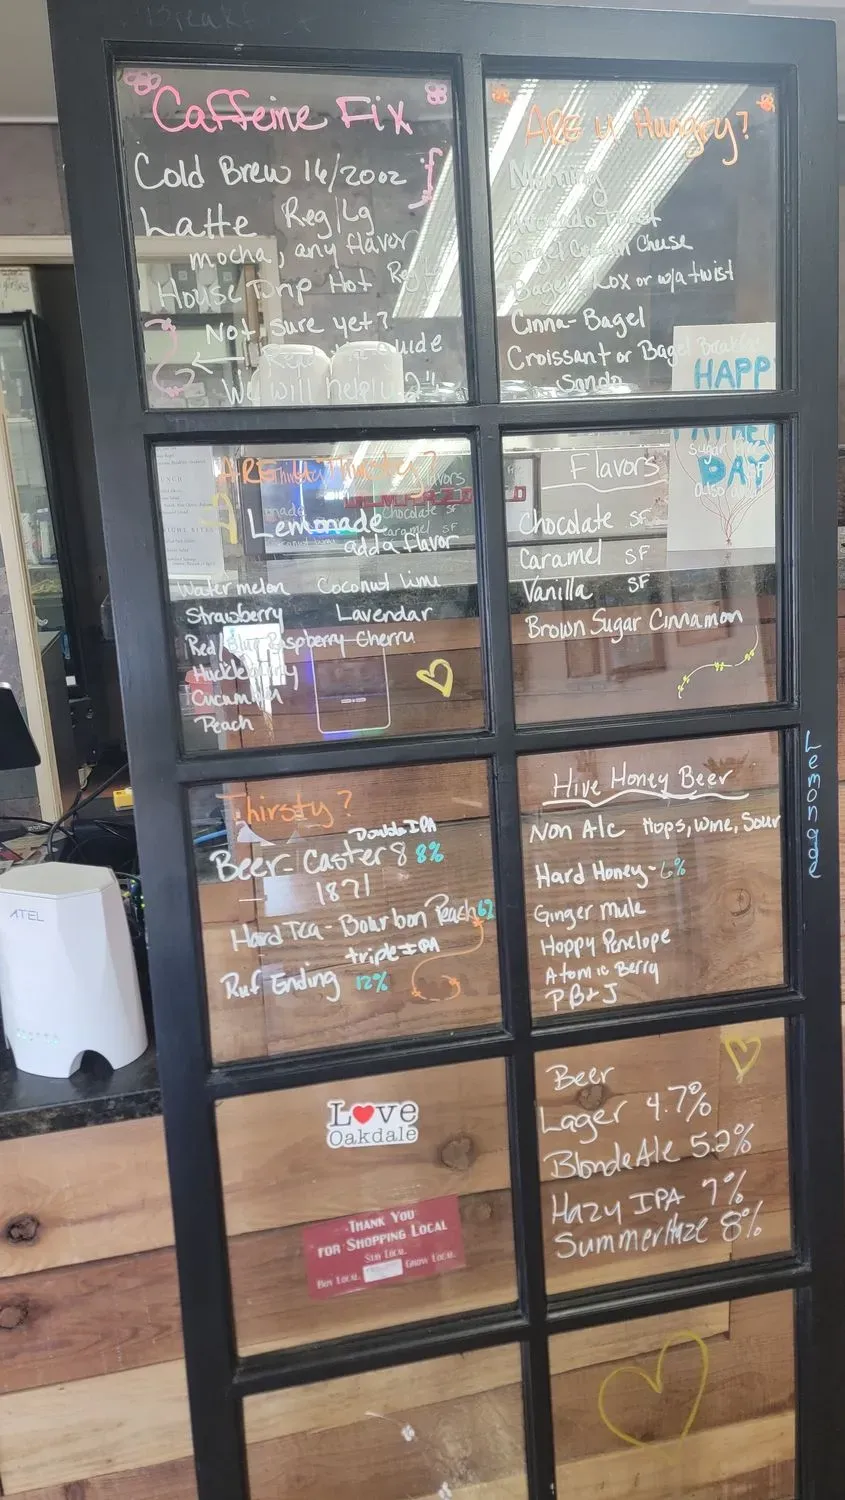 Caffeine Fix
Cold Brew 16/20oz
Latte Reg/Lg
mocha, any flavor
House Drip Hot Reg
Not sure yet?
We will help u
ARE u Hungry?
Morning
Avocado Toast
Bagel Cream Cheese
Bagel Lox or w/a twist
Cinna-Bagel
Croissant or Bagel Breakfast
Sando
HAPP
DAY
ARE Thirsty?
Lemonade
add a flavor
Watermelon Coconut lime
Strawberry Lavendar
Red/Blue Raspberry Cherry
Huckleberry
Cucumber
Peach
Flavors
Chocolate SF
Caramel SF
Vanilla SF
Brown Sugar Cinnamon
Lemonade
Thirsty?
Double IPA
Beer-Caster 8 8%
1871
Hard Tea-Bourbon Peach
triple IPA
Ruf Ending 12%
Hive Honey Beer
Non Alc Hops, Wine, Sour
Hard Honey-6%
Ginger Mule
Hoppy Penelope
Atomic Berry
PB&J
Love
Oakdale
Thank You
for Shopping Local
Stay Local
Buy Local Grow Local
Beer
Lager 4.7%
Blonde Ale 5.2%
Hazy IPA 7%
Summer Haze 8%
ATEL